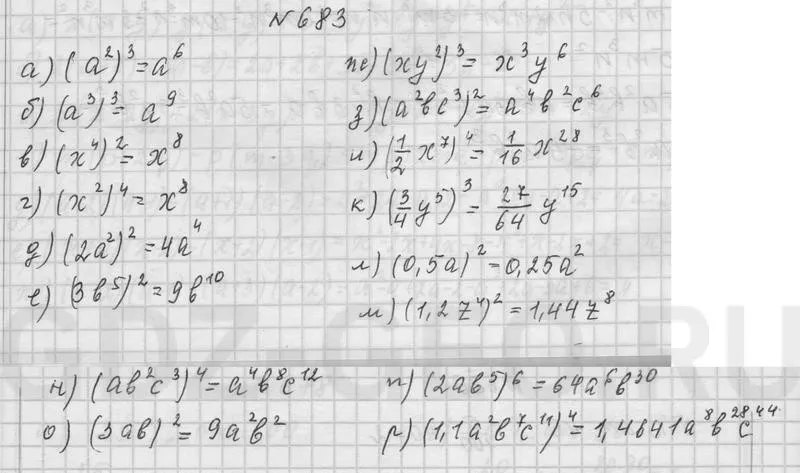 №683
а) (a²)³=a⁶
б) (a³)³=a⁹
в) (x⁴)²=x⁸
г) (x²)⁴=x⁸
д) (2a²)²=4a⁴
е) (3b⁵)²=9b¹⁰
ж) (xy²)³=x³y⁶
з) (a²bc³)²=a⁴b²c⁶
и) (1/2 x⁷)⁴=1/16 x²⁸
к) (3/4 y⁵)³=27/64 y¹⁵
л) (0,5a)²=0,25a²
м) (1,2z⁴)²=1,44z⁸
н) (ab²c³)⁴=a⁴b⁸c¹²
о) (3ab)²=9a²b²
п) (2ab⁵)⁶=64a⁶b³⁰
р) (1,1a²b⁷c¹¹)⁴=1,4641a⁸b²⁸c⁴⁴